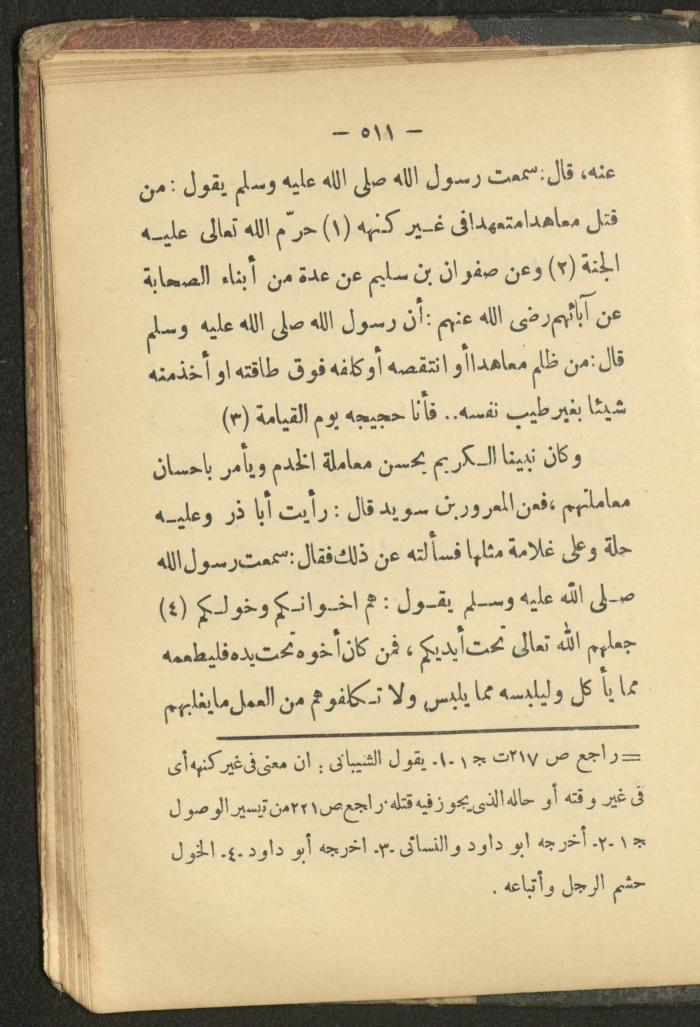 — ٥١١ —
عنه، قال: سمعت رسول الله صلى الله عليه وسلم يقول : من
قتل معاهدا متعهدا فى غير كنهه (١) حرّم الله تعالى عليه
الجنة (٢) وعن صفوان بن سليم عن عدة من أبناء الصحابة
عن آبائهم رضى الله عنهم : أن رسول الله صلى الله عليه وسلم
قال : من ظلم معاهدا أو انتقصه أو كلفه فوق طاقته او أخذ منه
شيئا بغير طيب نفسه.. فأنا حجيجه يوم القيامة (٣)
وكان نبينا الكريم يحسن معاملة الخدم ويأمر باحسان
معاملتهم ، فعن المعرور بن سويد قال : رأيت أبا ذر وعليه
حلة وعلى غلامة مثلها فسألته عن ذلك فقال : سمعت رسول الله
صلى الله عليه وسلم يقول : هم اخوانكم وخولكم (٤)
جعلهم الله تعالى تحت أيديكم ، فمن كان أخوه تحت يده فليطعمه
مما يأكل وليلبسه مما يلبس ولا تكلفوهم من العمل ما يغلبهم
= راجع ص ٢١٧ت ج ١ -١- يقول الشيبانى : ان معنى فى غير كنهه أى
فى غير وقته أو حاله الذى يجوز فيه قتله. راجع ص ٢٢١ من تيسير الوصول
ج ١ -٢- أخرجه ابو داود والنسائى -٣- اخرجه أبو داود -٤- الخول
حشم الرجل وأتباعه .